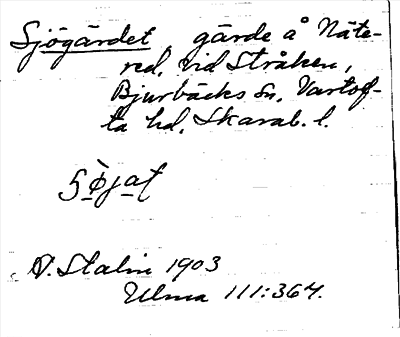 Sjögärdet gärde å Näte-
red, vid Stråken,
Bjurbäcks sn. Vartof-
ta hd, Skarab. l.
V. Stalin 1903
Ulma 111:364.